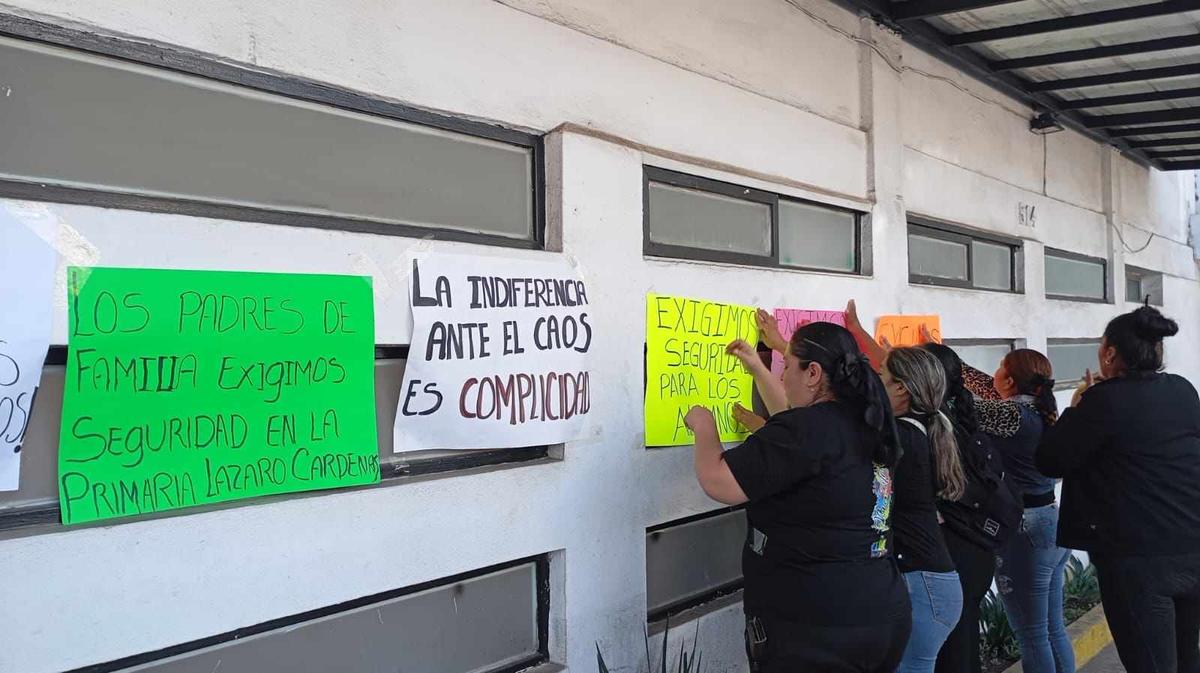 OS!
LOS PADRES DE
FAMILIA EXIGIMOS
SEGURIDAD EN LA
PRIMARIA LAZARO CARDENAS
LA INDIFERENCIA
ANTE EL CAOS
ES COMPLICIDAD
EXIGIMOS
SEGURIDAD
PARA LOS
EXIGIMOS
614